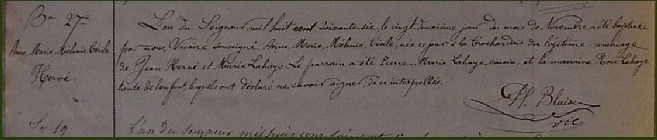 Bn 27e
Anne, Marie, Mélanie, Cécile
Hervé
L'an du Seigneur mil huit cent soixante six, le vingt deuxième jour du mois de Novembre a été baptisée
par nous, Vicaire soussigné Anne, Marie, Mélanie, Cécile, née ce jour à la Crochardière du légitime mariage
de Jean Hervé et Maria Lahaye. Le parrain a été Pierre Marie Lahaye, cousin, et la marraine Lahaye
tante de l'enfant, lesquels ont déclaré ne savoir signer de ce interpellés.
H. Blaise
vic
19
L'an du seigneur mil huit cent soixant